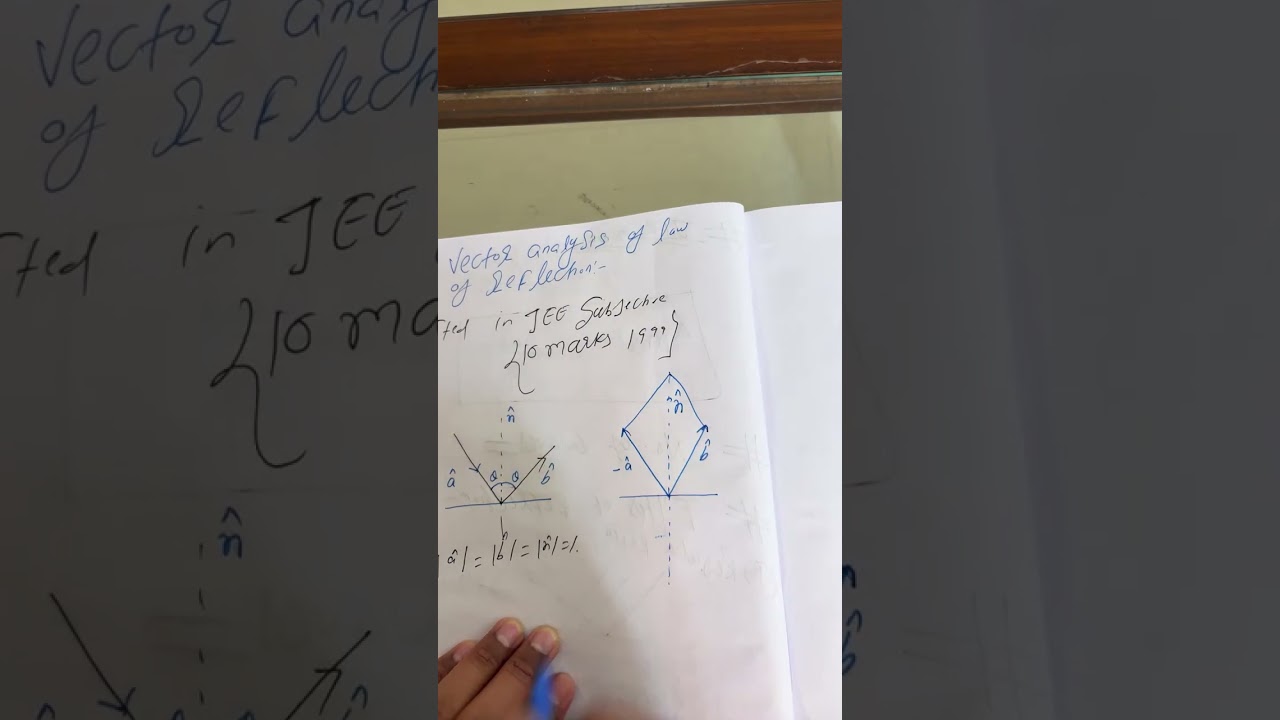 Vector analysis of law
of Reflection:-
ted in JEE Subjective
{10 marks 1999}
n̂
n̂
â
θ
θ
b̂
-â
b̂
|â| = |b̂| = |n̂| = 1.